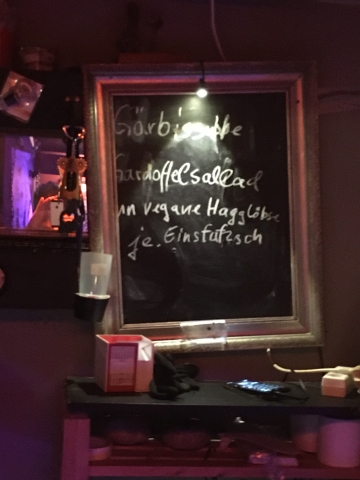 Görbissubbe
Gardoffelsallad
un vegane Hagglöbse
je. Einsfufzsch